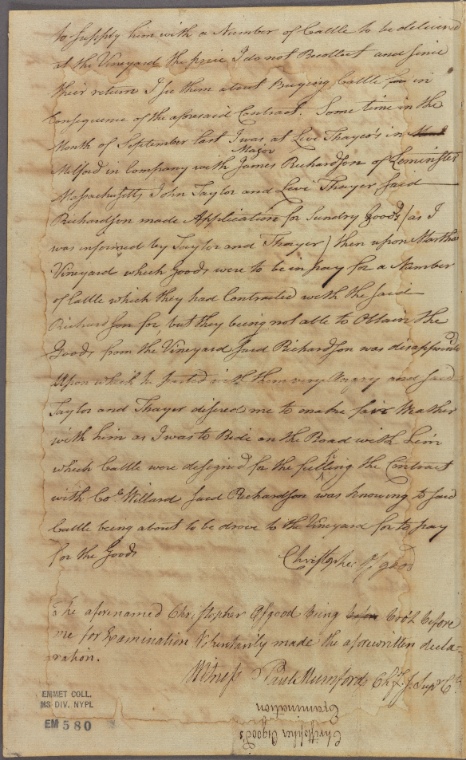 to Supply him with a Number of Cattle to be delivered
at the Vineyard the price I do not Recollect and since
their return I see them about Buying Cattle in
Consequence of the aforesaid Contract. Some time in the
Month of September last I was at Levi Thayer's in
Milford in Company with Major James Richardson of Leominster
Massachusetts John Taylor and Levi Thayer Said
Richardson made Application for Sundry Goods (as I
was informed by Taylor and Thayer) then upon Marthas
Vineyard which Goods were to be in pay for a Number
of Cattle which they had Contracted with the said
Richardson for, but they being not able to Obtain the
Goods from the Vineyard Said Richardson was disappointed
Upon which he parted with them very Angry and said
Taylor and Thayer desired me to make fair Weather
with him as I was to Ride on the Road with him
which Cattle were designed for the fulling the Contract
with Colo. Willard Said Richardson was knowing to said
Cattle being about to be drove to the Vineyard for to pay
for the Goods
Christopher Osgood
The aforenamed Christopher Osgood being both before
me for Examination Voluntarily made the aforewritten decla-
ration.
Witness Paul Mumford Ch. J. Sup. Ct.
EMMET COLL.
MS DIV. NYPL
EM 580
Christopher Osgood's
Examination